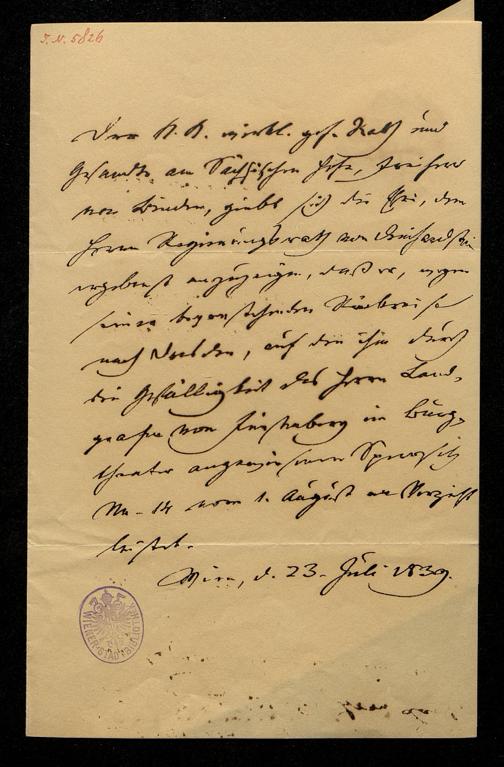 I.N. 5826
Der K. K. wirkl. geh. Rath und
Gesandte am Sächsischen Hofe, Freiherr
von Binder, giebt sich die Ehre, dem
Herrn Regierungsrath von Deinhardstein
ergebenst anzuzeigen, daß er, wegen
seiner bevorstehenden Rückreise
nach Dresden, auf den ihm durch
die Gefälligkeit des Herrn Land-
grafen von Fürstenberg im Burg-
theater angewiesenen Sperrsitz
No. 14 vom 1. August an Verzicht
leistet.
Wien, d. 23. Juli 1839.
WIENER STADTBIBLIOTHEK